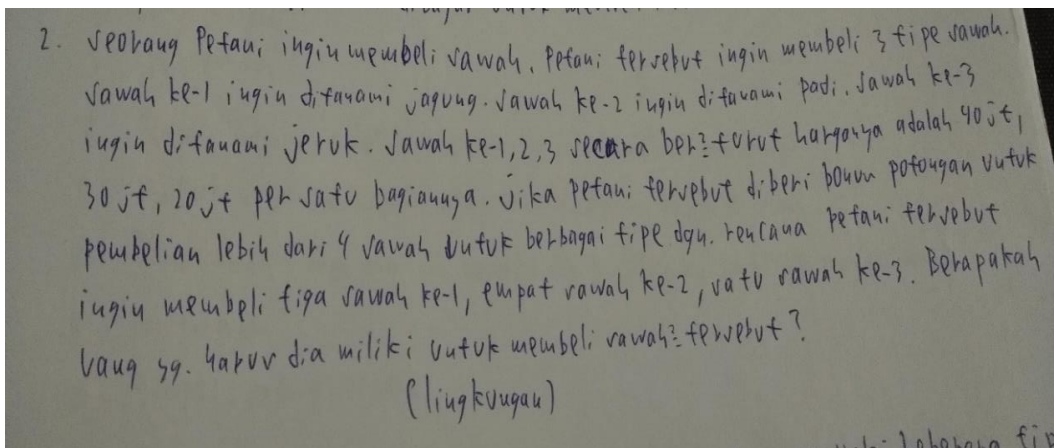 2. Seorang Petani ingin membeli sawah. Petani tersebut ingin membeli 3 tipe sawah.
Sawah ke-1 ingin ditanami jagung. Sawah ke-2 ingin ditanami padi. Sawah ke-3
ingin ditanami jeruk. Sawah ke-1,2,3 secara ber2turut harganya adalah 40 jt,
30 jt, 20 jt per satu bagiannya. Jika petani tersebut diberi bonus potongan untuk
pembelian lebih dari 4 sawah untuk berbagai tipe dgn. rencana petani tersebut
ingin membeli tiga sawah ke-1, empat sawah ke-2, satu sawah ke-3. Berapakah
uang yg. harus dia miliki untuk membeli sawah2 tersebut?
(lingkungan)